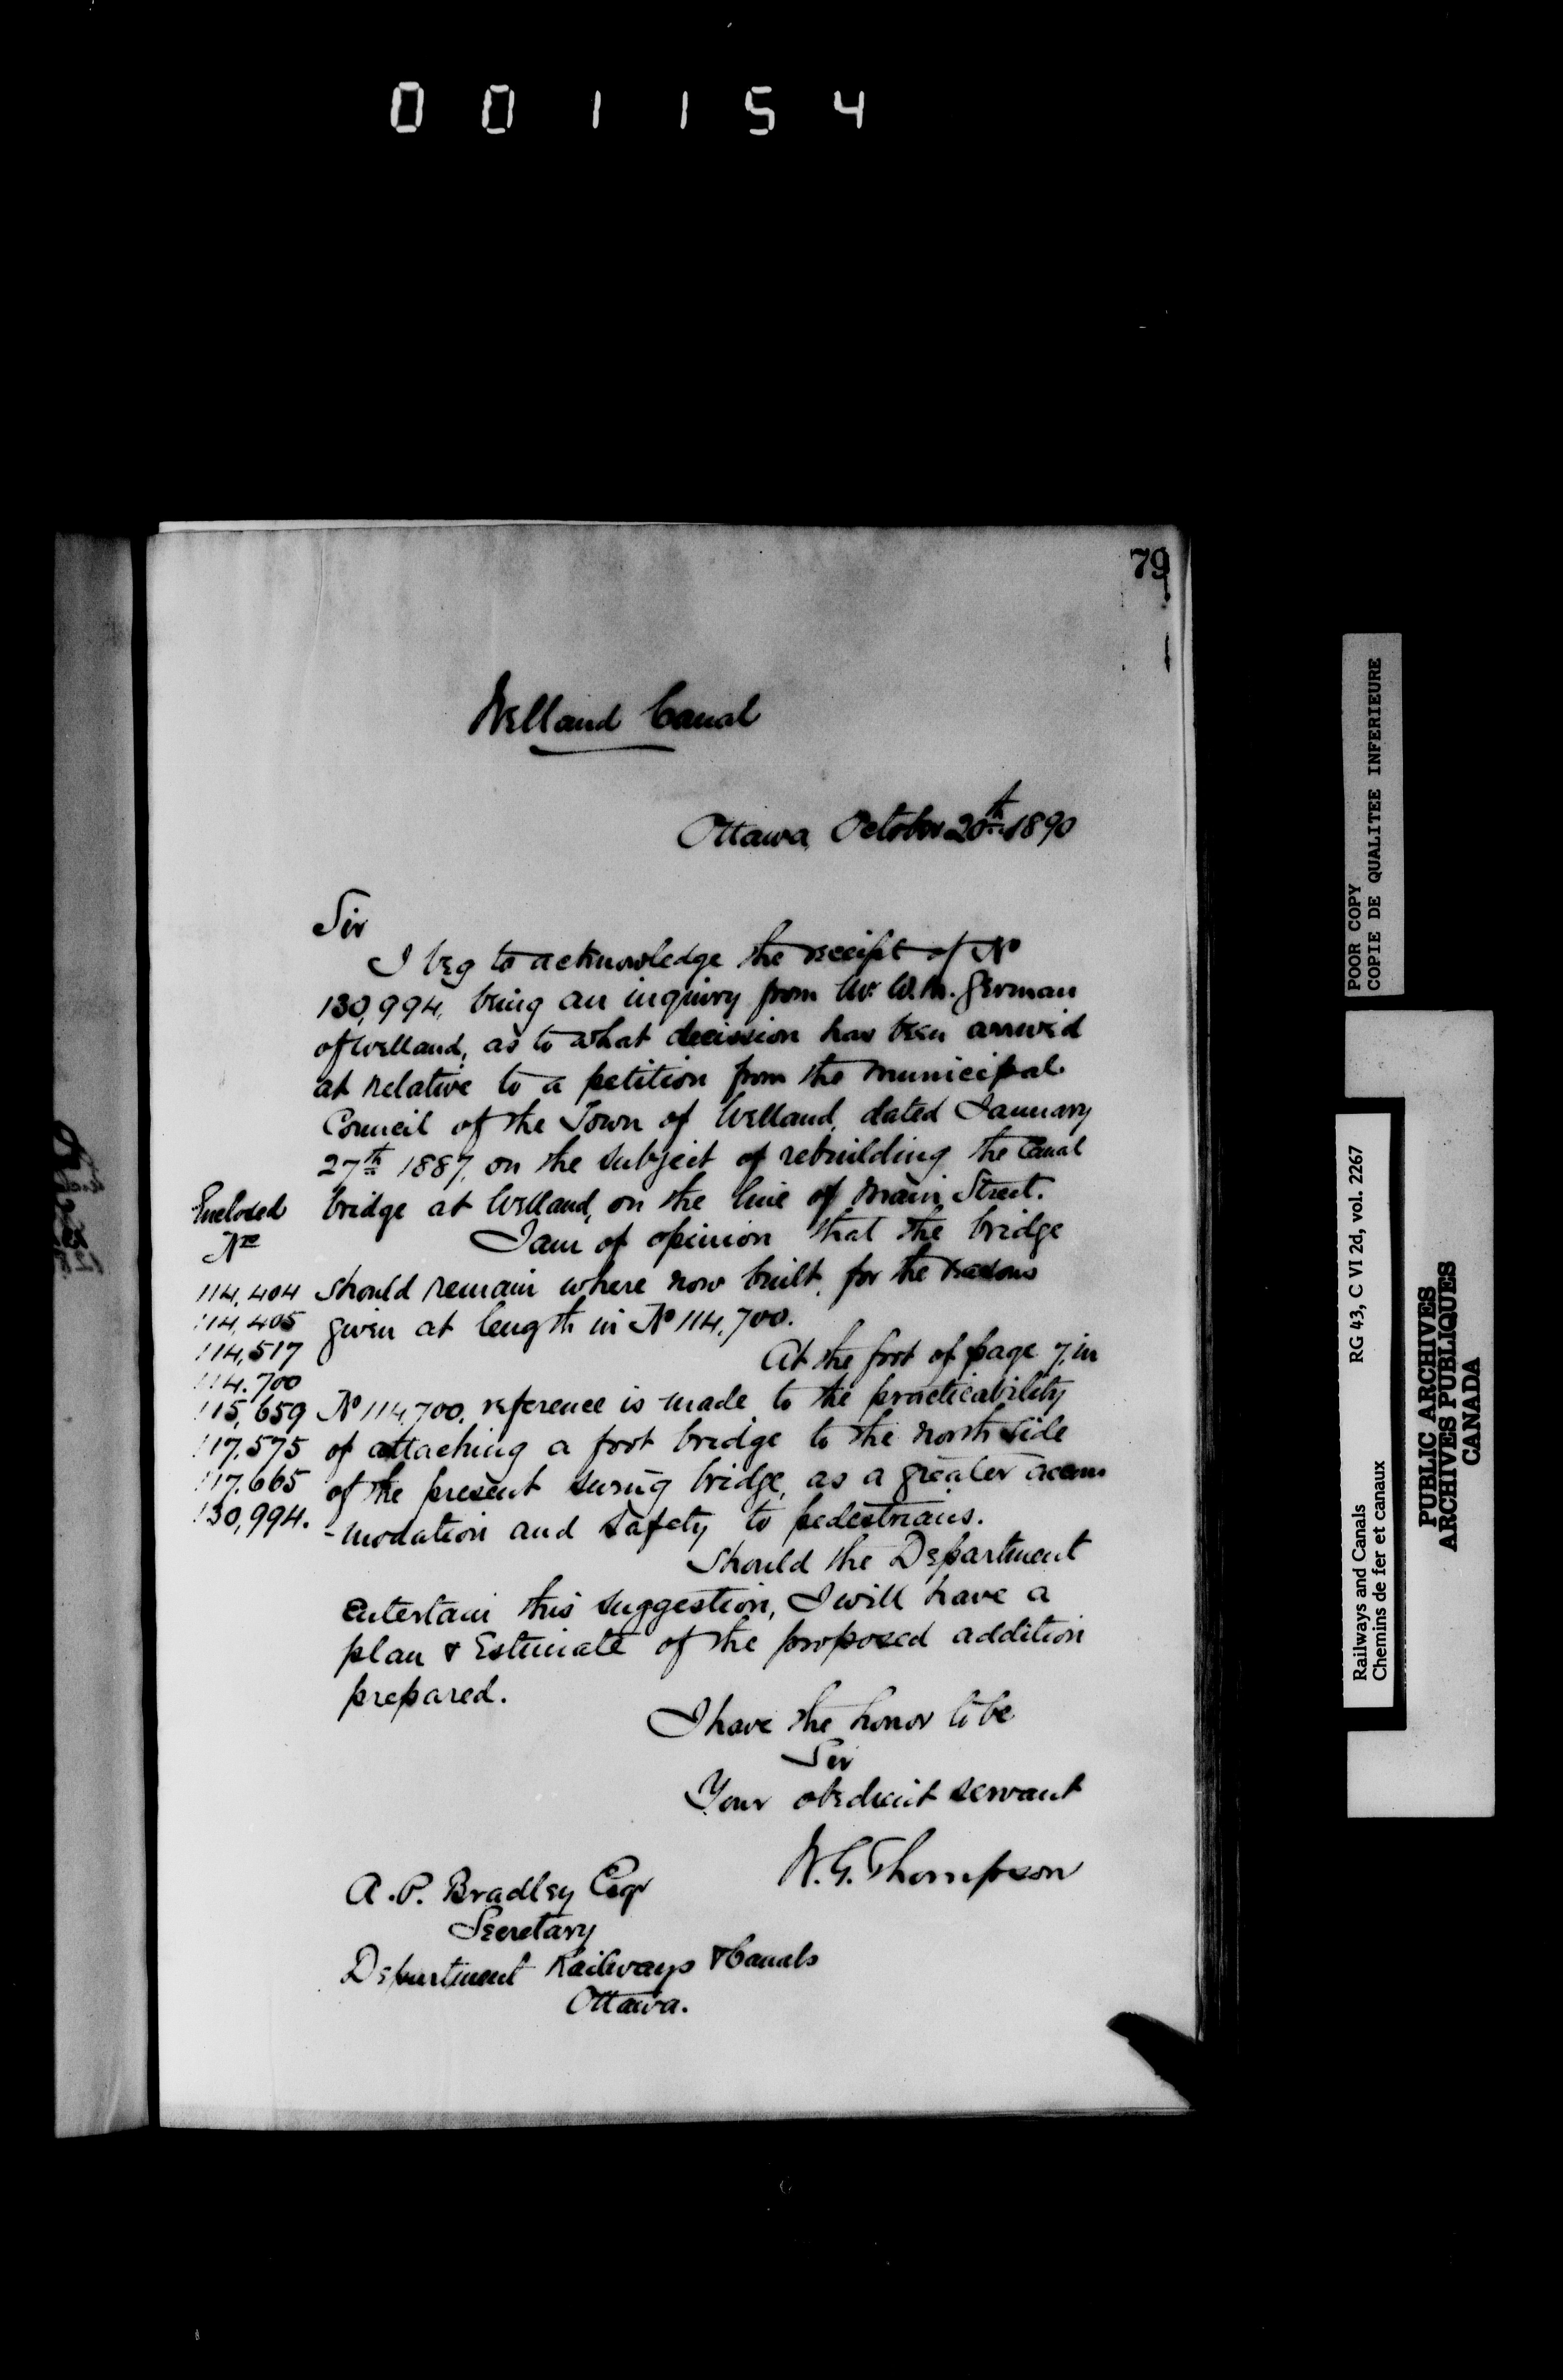 0 0 1 1 5 4
79
Welland Canal
Ottawa, October 20th 1890
Sir
I beg to acknowledge the receipt of No
130,994, being an inquiry from Mr. W.M. German
of Welland, as to what decission has been arrived
at relative to a petition from the Municipal
Council of the Town of Welland, dated January
27th 1887, on the subject of rebuilding the Canal
bridge at Welland, on the line of Main Street.
I am of opinion that the bridge
should remain where now built, for the reasons
given at length in No 114,700.
At the foot of page 7, in
No 114,700, reference is made to the practicability
of attaching a foot bridge to the north side
of the present swing bridge, as a greater accom
-modation and safety to pedestrians.
Should the Department
entertain this suggestion, I will have a
plan & Estimate of the proposed addition
prepared.
I have the honor to be
Sir
Your obedient servant
W.G. Thompson
A.P. Bradley Esqr
Secretary
Department Railways & Canals
Ottawa.
Enclosed
Nos
114,404
114,405
114,517
114,700
115,659
117,575
117,665
130,994.
POOR COPY
COPIE DE QUALITEE INFERIEURE
Railways and Canals RG 43, C VI 2d, vol. 2267
Chemins de fer et canaux
PUBLIC ARCHIVES
ARCHIVES PUBLIQUES
CANADA